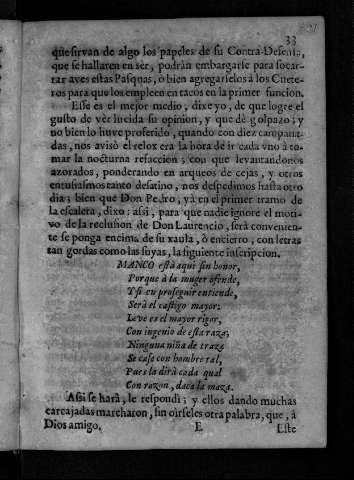 33
que sirvan de algo los papeles de su Contra-Defensa,
que se hallaren en ser, podràn embargarse para socar-
rar aves estas Pasquas, ò bien agregarselos à los Cuete-
ros para que los empleen en tacos en la primer funcion.
Esse es el mejor medio, dixe yo, de que logre el
gusto de vèr lucida su opinion, y que dè golpazo; y
no bien lo huve proferido, quando con diez campana-
das, nos avisò el relox era la hora de ir cada vno à to-
mar la nocturna refaccion; con que levantandonos
azorados, ponderando en arqueos de cejas, y otros
entusiasmos tanto desatino, nos despedimos hasta otro
dia; bien que Don Pedro, yà en el primer tramo de
la escalera, dixo: assi, para que nadie ignore el moti-
vo de la reclusion de Don Laurencio, serà convenien-
te se ponga encima de su xaula, ò encierro, con letras
tan gordas como las suyas, la siguiente inscripcion.
MANCO està aqui sin honor,
Porque à la muger ofende,
Y si en proseguir entiende,
Serà el castigo mayor:
Leve es el mayor rigor,
Con ingenio de esta raza,
Ninguna niña de traza
Se case con hombre tal,
Pues la dirà cada qual
Con razon, daca la maza.
Assi se harà, le respondì; y ellos dando muchas
carcajadas marcharon, sin oirseles otra palabra, que, à
Dios amigo.
E
Este